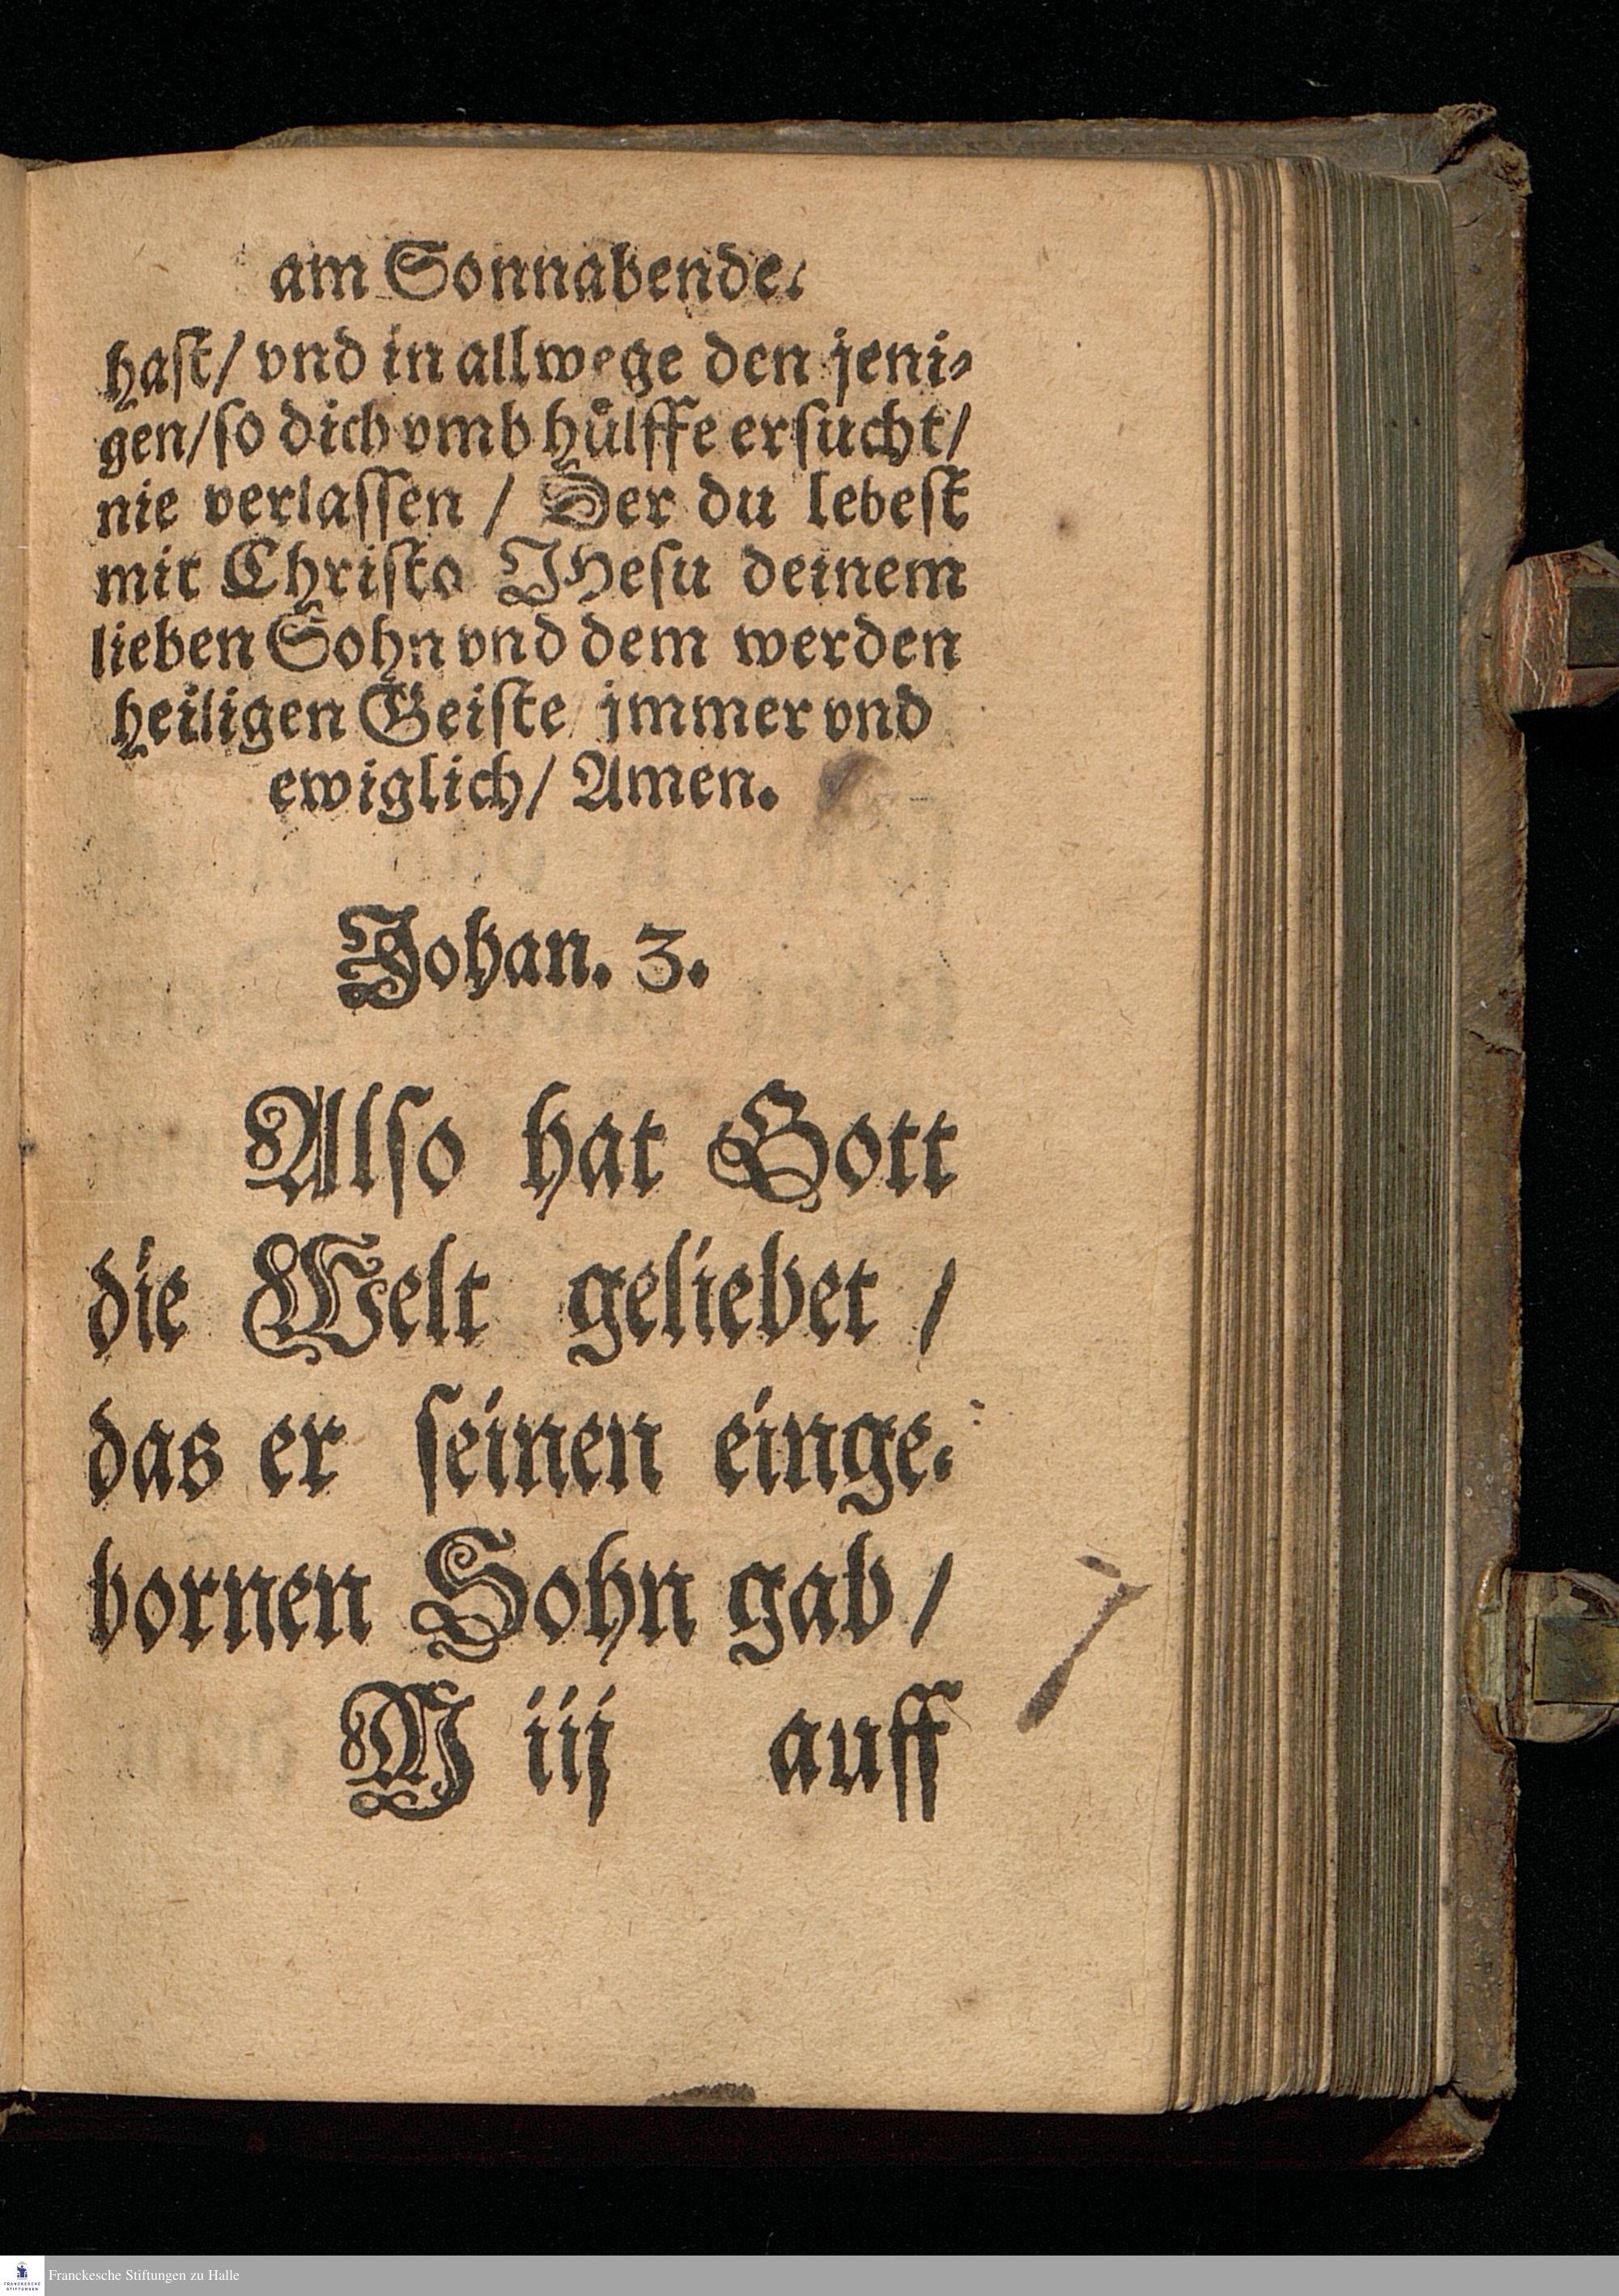 am Sonnabende.
hast/ vnd in allwege den jeni-
gen/ so dich vmb hülffe ersucht/
nie verlassen / Der du lebest
mit Christo JHesu deinem
lieben Sohn vnd dem werden
heiligen Geiste/ jmmer vnd
ewiglich/ Amen.
Johan. 3.
Also hat Gott
die Welt geliebet /
das er seinen einge-
bornen Sohn gab /
iij auff
Franckesche Stiftungen zu Halle
FRANCKESCHE
STIFTUNGEN